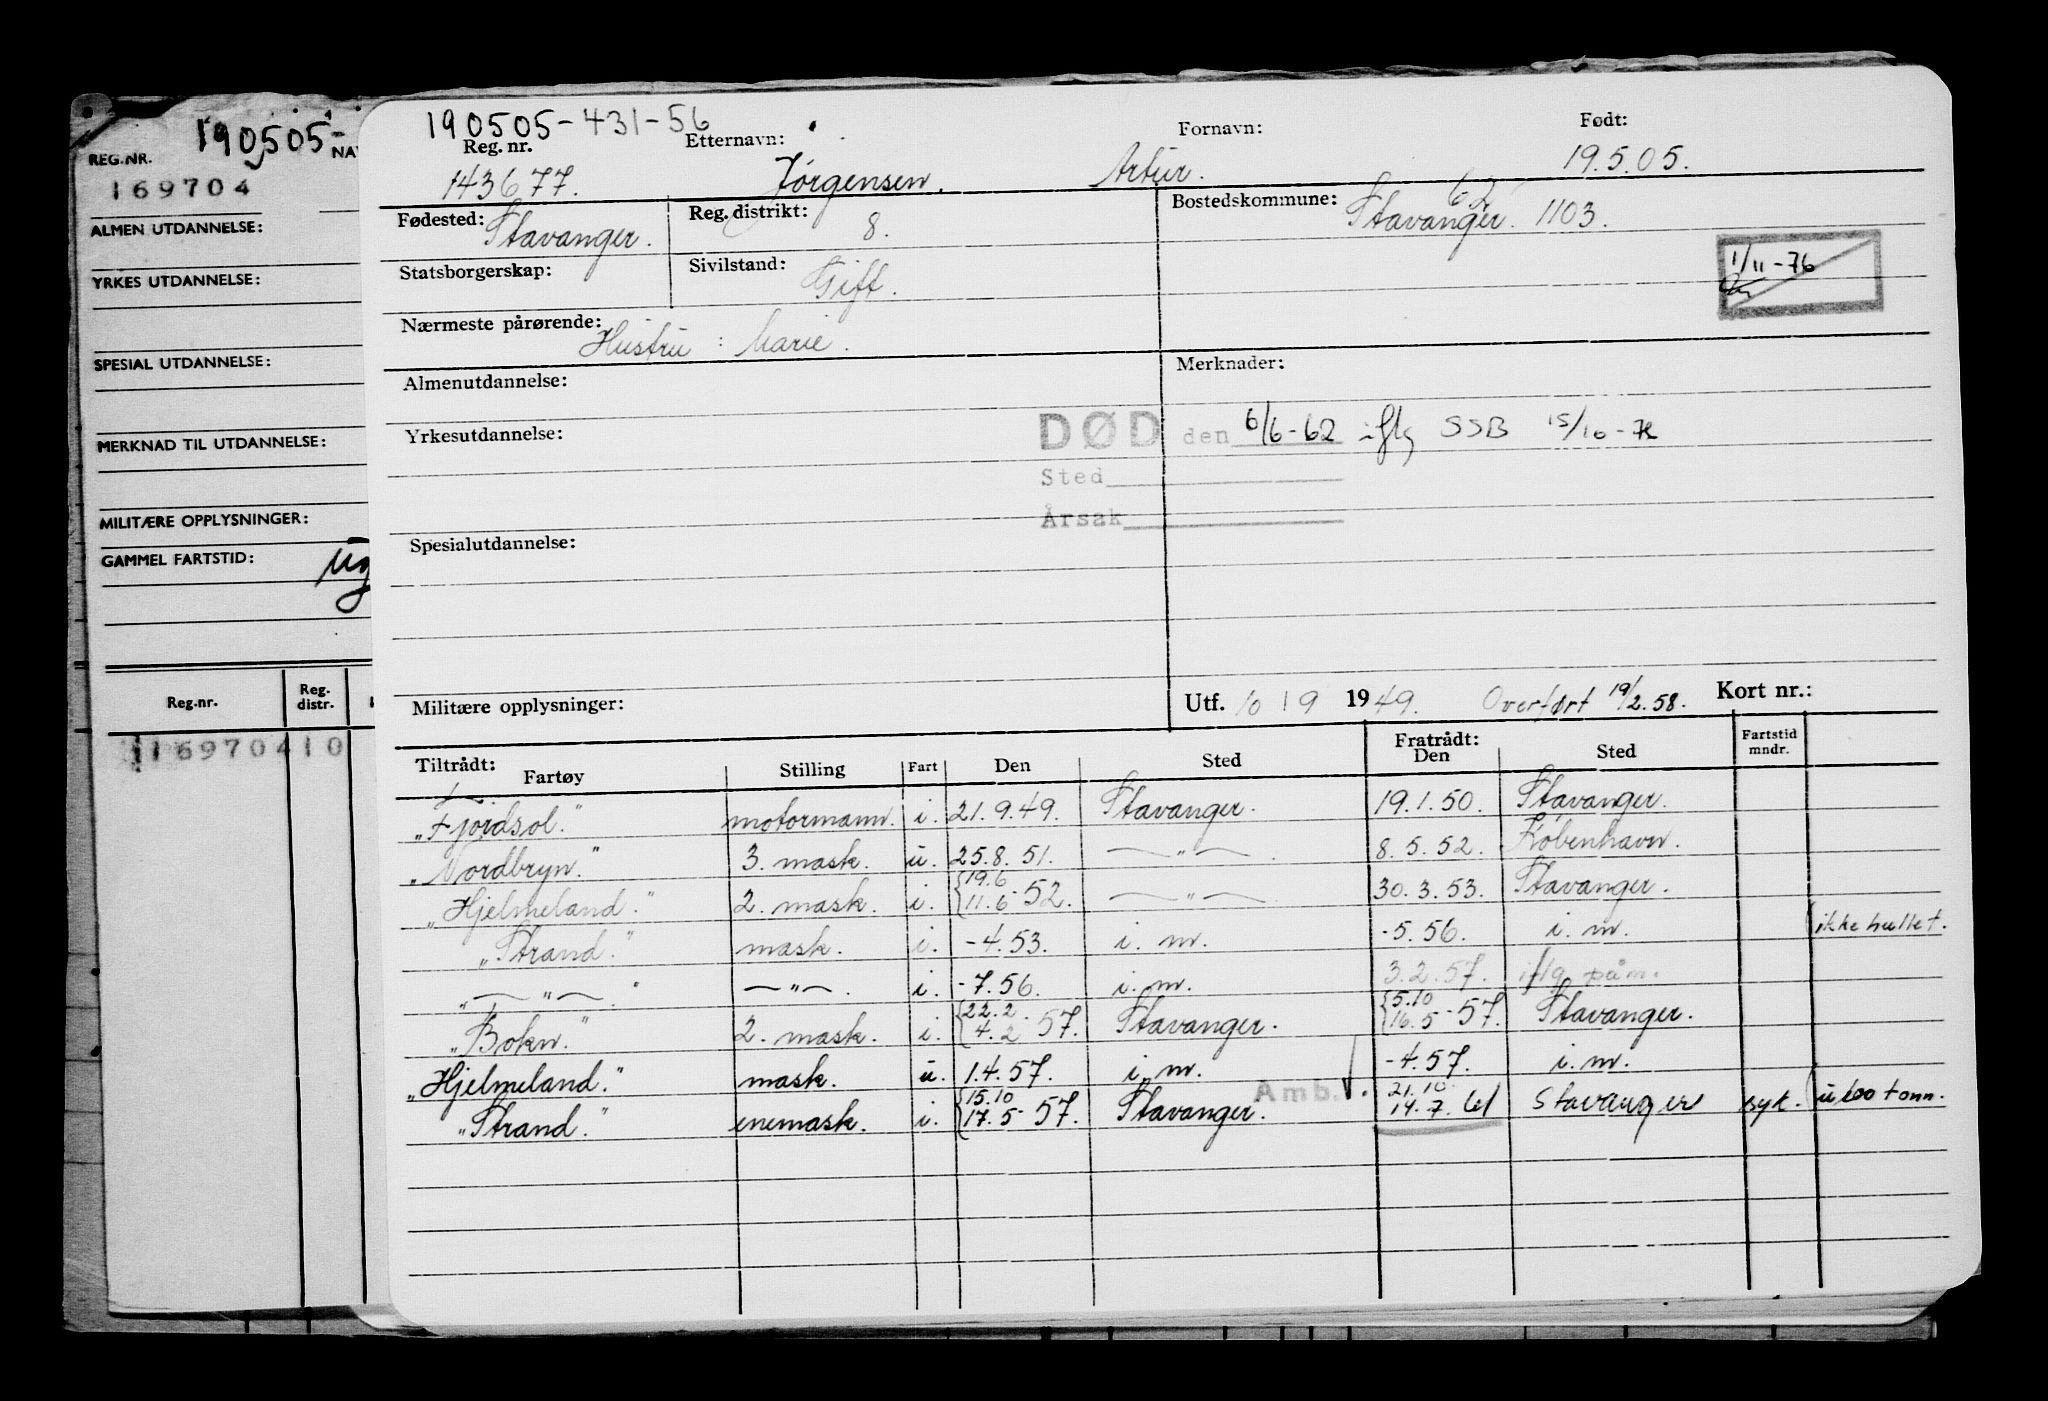 190505-
REG.NR.
NA
169704
ALMEN UTDANNELSE:
YRKES UTDANNELSE:
SPESIAL UTDANNELSE:
MERKNAD TIL UTDANNELSE:
MILITÆRE OPPLYSNINGER:
GAMMEL FARTSTID: ug
Reg.nr. Reg. distr.
16970410
190505-431-56
Reg. nr. Etternavn: Fornavn: Født:
143677. Jørgensen. Artur. 19.5.05.
Fødested: Stavanger. Reg. distrikt: 8. Bostedskommune: Stavanger 1103.
62
Statsborgerskap: Sivilstand: Gift.
1/11-76
Nærmeste pårørende: Hustru : Marie.
Almenutdannelse: Merknader:
Yrkesutdannelse: DØD den 6/6-62 iflg SSB 15/10-
Sted
Årsak
Spesialutdannelse:
Militære opplysninger: Utf. 10 19 1949. Overført 19/2.58. Kort nr.:
Tiltrådt: Fratrådt:
Fartøy Stilling Fart Den Sted Den Sted Fartstid mndr.
„Fjordsol.” motormann. i. 21.9.49. Stavanger. 19.1.50. Stavanger.
„Nordbryn.” 3. mask. u. 25.8.51. —"—. 8.5.52. København.
„Hjelmeland.” 2. mask. i. {19.6 11.6-52. —"—. 30.3.53. Stavanger.
„Strand.” mask. i. -4.53. i. m. -5.56. i. m. (ikke hullet.
„—"—.” —"—. i. -7.56. i. m. 3.2.57. iflg påm.
„Bokn.” 2. mask. i. {22.2. 4.2 57. Stavanger. {5.10 16.5-57. Stavanger.
„Hjelmeland.” mask. u. 1.4.57. i. m. -4.57. i. m.
„Strand.” enemask. i. {15.10 17.5-57. Stavanger. Amb. 21.10. 14.7.61 Stavanger syk. (u 100 tonn.